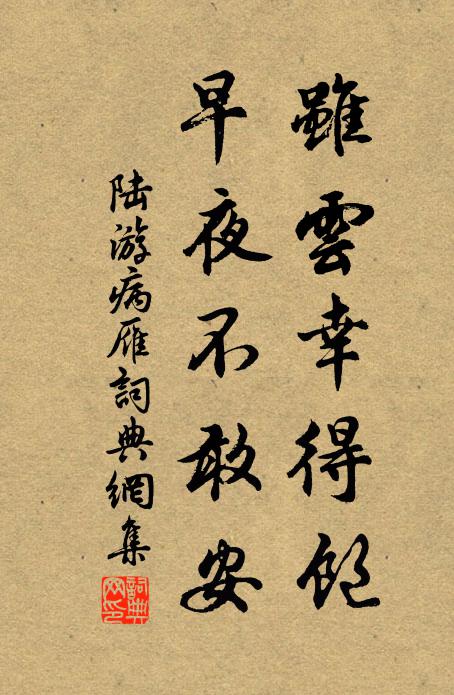 雖雲幸得飽
早夜不敢安
陆游病雁詞典網集
詞典网印